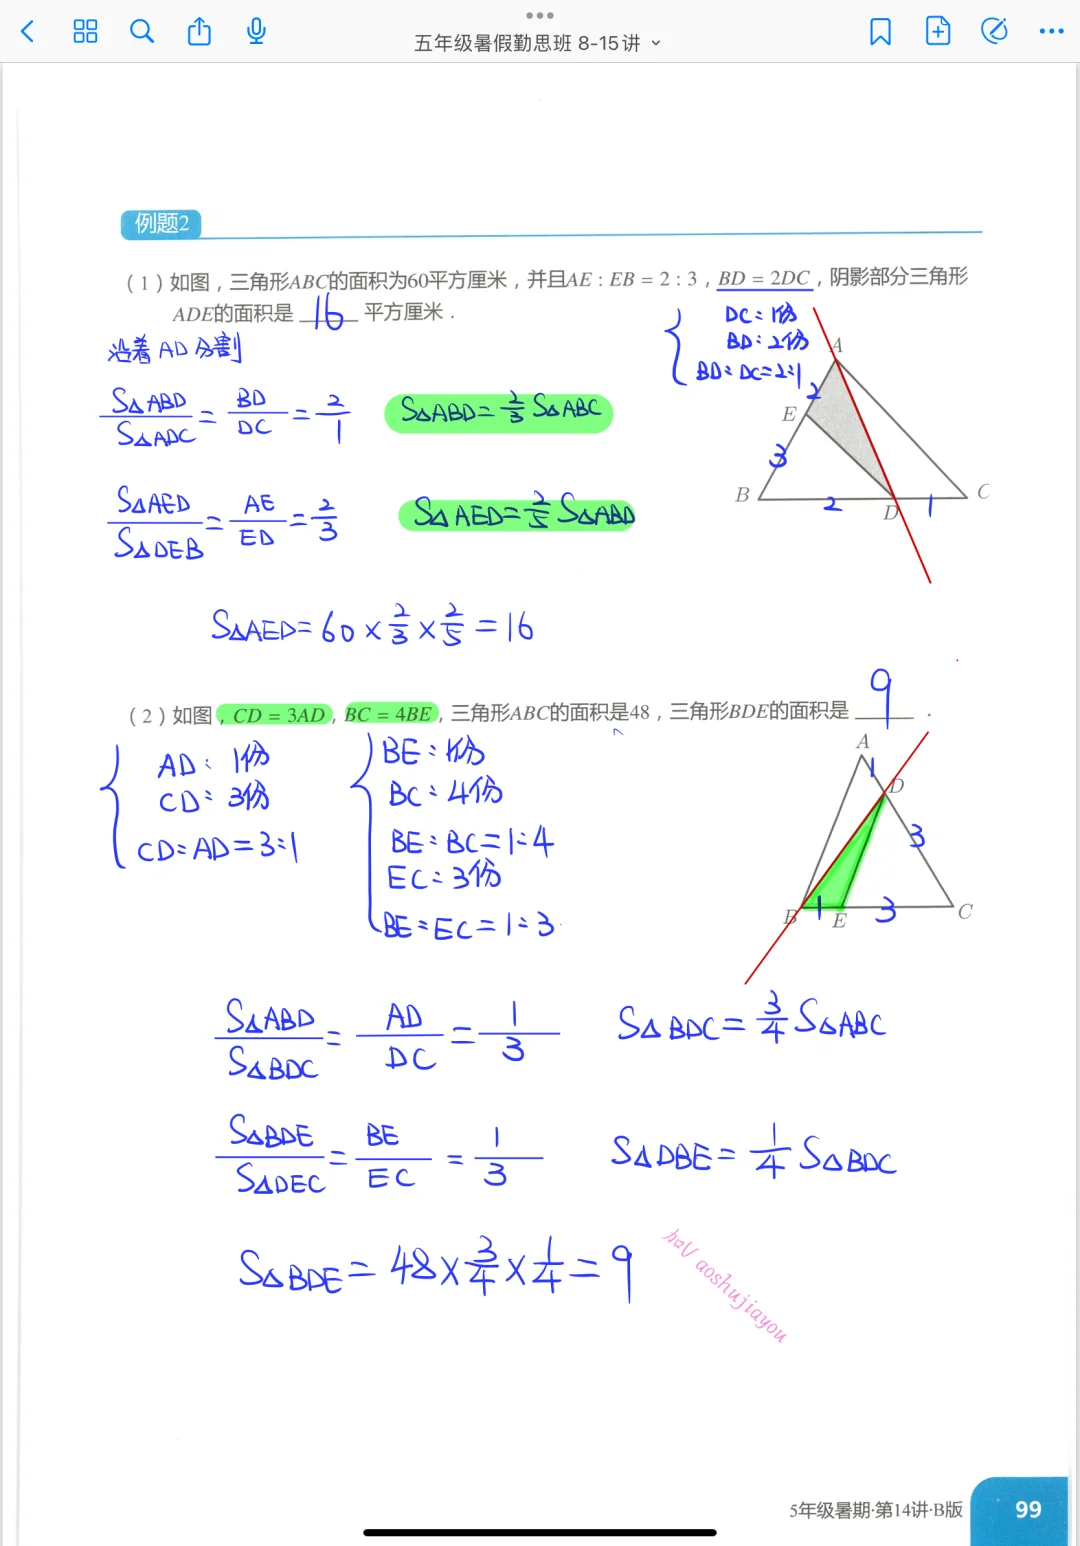 五年级暑假勤思班 8-15讲
例题2
（1）如图，三角形ABC的面积为60平方厘米，并且AE：EB＝2：3，BD＝2DC，阴影部分三角形
ADE的面积是 16 平方厘米．
沿着AD分割
DC：1份
BD：2份
BD：DC＝2：1
S△ABD/S△ADC＝BD/DC＝2/1
S△ABD＝2/3 S△ABC
S△AED/S△DEB＝AE/ED＝2/3
S△AED＝2/5 S△ABD
A
2
E
3
B
2
D
1
C
S△AED＝60×2/3×2/5＝16
（2）如图，CD＝3AD，BC＝4BE，三角形ABC的面积是48，三角形BDE的面积是 9 ．
AD：1份
CD：3份
CD：AD＝3：1
BE：1份
BC：4份
BE：BC＝1：4
EC：3份
BE：EC＝1：3
A
1
D
3
B
1
E
3
C
S△ABD/S△BDC＝AD/DC＝1/3
S△BDC＝3/4 S△ABC
S△BDE/S△DEC＝BE/EC＝1/3
S△DBE＝1/4 S△BDC
S△BDE＝48×3/4×1/4＝9
aoshujiayou
5年级暑期·第14讲·B版
99